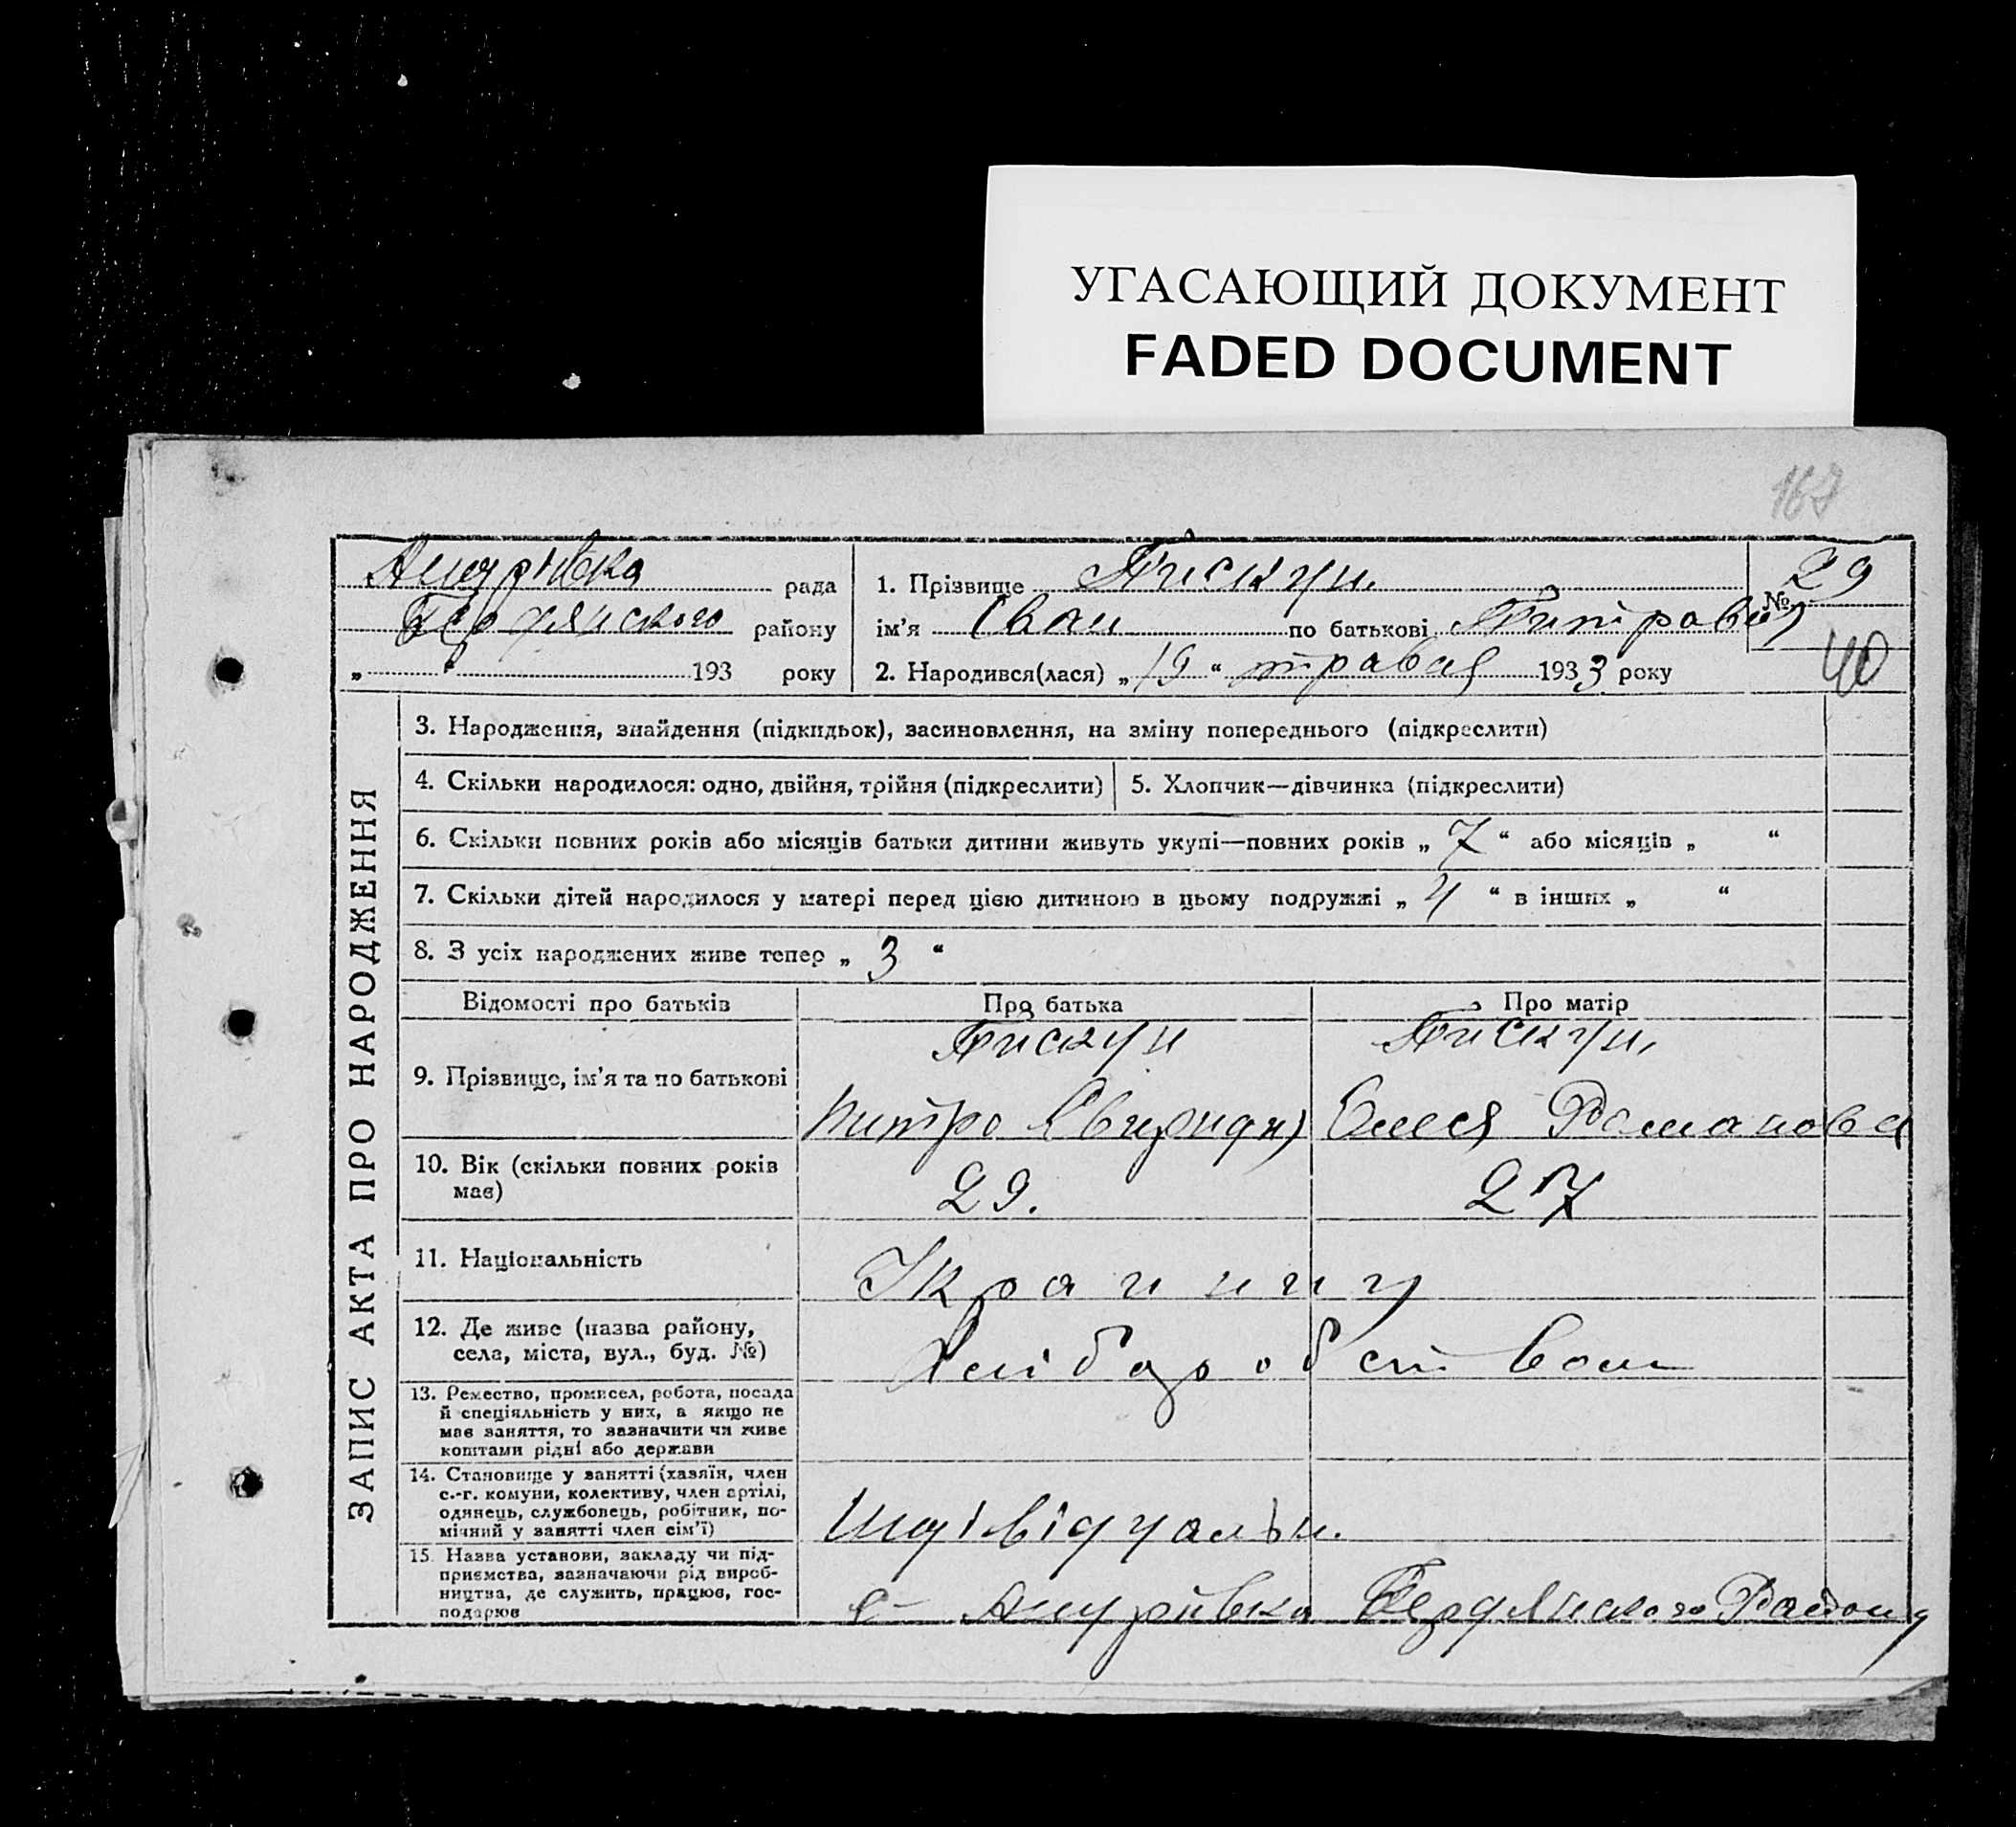 УГАСАЮЩИЙ ДОКУМЕНТ
FADED DOCUMENT
167
Андрівка рада
Бердянского району
„ “ 193 року
1. Прізвище Пискун
ім'я Іван по батькові Питрович
2. Народився(лася) „19“ травня 1933 року
№ 29
40
ЗАПИС АКТА ПРО НАРОДЖЕННЯ
3. Народження, знайдення (підкидьок), засиновлення, на зміну попереднього (підкреслити)
4. Скільки народилося: одно, двійня, трійня (підкреслити)
5. Хлопчик—дівчинка (підкреслити)
6. Скільки повних років або місяців батьки дитини живуть укупі—повних років „ 7 “ або місяців „ “
7. Скільки дітей народилося у матері перед цією дитиною в цьому подружжі „ 4 “ в інших „ “
8. З усіх народжених живе тепер „ 3 “
Відомості про батьків
Про батька
Про матір
9. Прізвище, ім'я та по батькові
Пискун
Питро Свирид
Пискун
Олеся Романовна
10. Вік (скільки повних років
має)
29.
27
11. Національність
Украини
12. Де живе (назва району,
села, міста, вул., буд. №)
Хлібаробством
13. Ремество, промисел, робота, посада
й спеціяльність у них, а якщо не
має заняття, то зазначити чи живе
коштами рідні або держави
14. Становище у занятті (хазяїн, член
с.-г. комуни, колективу, член артілі,
одинець, службовець, робітник, по-
мічний у занятті член сім'ї)
Индівідуальн.
15. Назва установи, закладу чи під-
приємства, зазначаючи рід вироб-
ництва, де служить, працює, гос-
подарює
с- Андрівка Бердянского Району